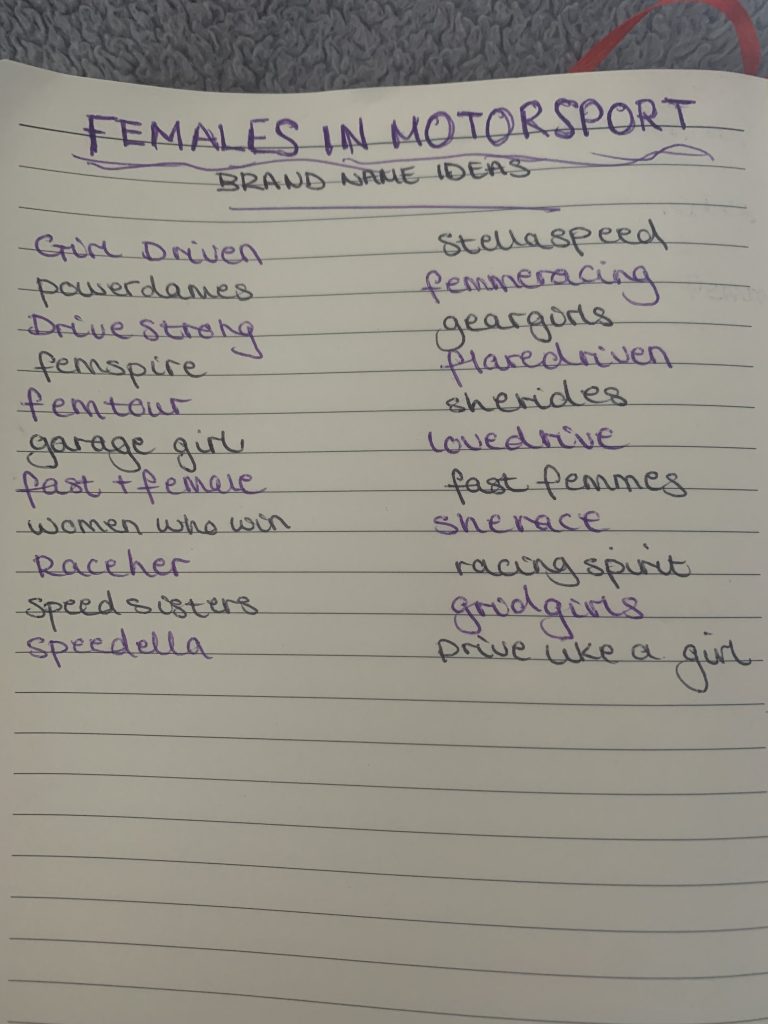 FEMALES IN MOTORSPORT
BRAND NAME IDEAS
Girl Driven
powerdames
Drive strong
femspire
femtour
garage girl
fast + female
women who win
Raceher
speedsisters
speedella
stellaspeed
femmeracing
geargirls
flaredriven
sherides
lovedrive
fast femmes
sherace
racing spirit
gridgirls
Drive like a girl